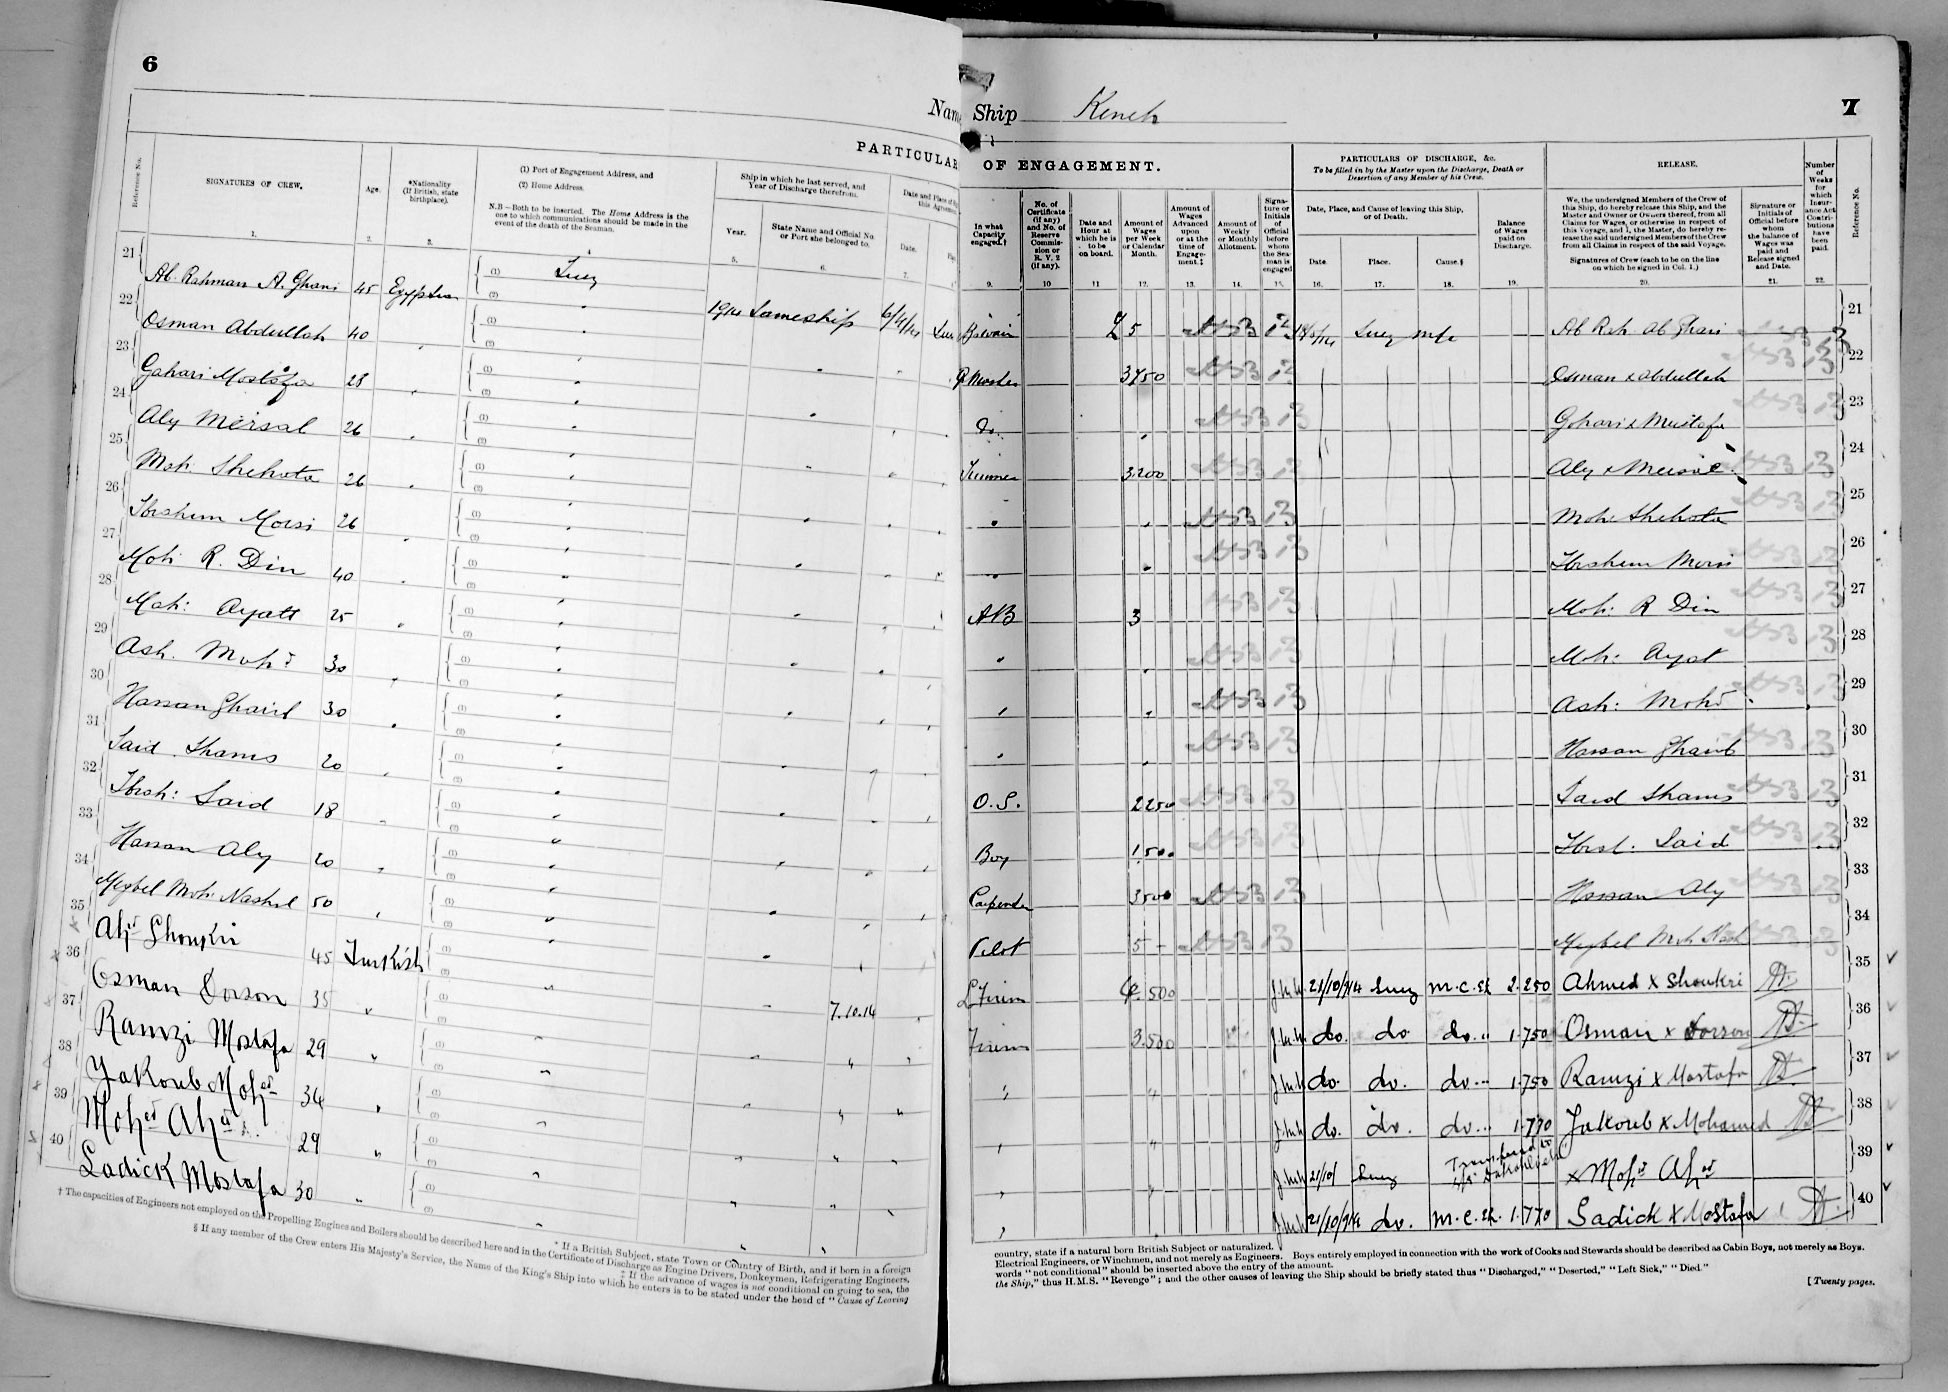 6
Name
PARTICULAR
Reference No.
SIGNATURES OF CREW.
Age.
*Nationality
(If British, state
birthplace).
(1) Port of Engagement Address, and
(2) Home Address.
N.B—Both to be inserted. The Home Address is the
one to which communications should be made in the
event of the death of the Seaman.
Ship in which he last served, and
Year of Discharge therefrom.
Year.
State Name and Official No.
or Port she belonged to.
Date.
1. 2. 3. 4 5. 6. 7.
21 Ab. Rahman A. Ghani 45 Egyptian (1) Suez 1914 Sameship 6/4/14 Suez
22 Osman Abdullah 40
23 Gahari Mostafa 28
24 Aly Mersal 26
25 Moh: Shehata 26
26 Ibrahim Morsi 26
27 Moh: R. Din 40
28 Moh: Ayatt 25
29 Ash. Mohd 30
30 Hassan Gharib 30
31 Said Shams 20
32 Ibrh: Said 18
33 Hassan Aly 20
34 Megbel Moh: Nashrl 50
35 Ahd Shoukri 45 Turkish
36 Osman Dorson 35 " 7.10.14
37 Ramzi Mostafa 29 "
38 Yakoub Mohed 34
39 Mohed Ahd 29 "
40 Sadick Mostafa 30 "
* If a British Subject, state Town or Country of Birth, and if born in a foreign
† The capacities of Engineers not employed on the Propelling Engines and Boilers should be described here and in the Certificate of Discharge as Engine Drivers, Donkeymen, Refrigerating Engineers,
‡ If the advance of wages is not conditional on going to sea, the
§ If any member of the Crew enters His Majesty's Service, the Name of the King's Ship into which he enters is to be stated under the head of "Cause of Leaving
Ship Keneh
7
OF ENGAGEMENT.
PARTICULARS OF DISCHARGE, &c.
To be filled in by the Master upon the Discharge, Death or
Desertion of any Member of his Crew.
RELEASE.
Number
of
Weeks
for
which
Insur-
ance Act
Contri-
butions
have
been
paid.
Reference No.
In what
Capacity
engaged.†
No. of
Certificate
(if any)
and No. of
Reserve
Commis-
sion or
R. V. 2
(if any).
Date and
Hour at
which he is
to be
on board.
Amount of
Wages
per Week
or Calendar
Month.
Amount of
Wages
Advanced
upon
or at the
time of
Engage-
ment.‡
Amount of
Weekly
or Monthly
Allotment.
Signa-
ture or
Initials
of
Official
before
whom
the Sea-
man is
engaged
Date, Place, and Cause of leaving this Ship,
or of Death.
Date. Place. Cause.§
Balance
of Wages
paid on
Discharge.
We, the undersigned Members of the Crew of
this Ship, do hereby release this Ship, and the
Master and Owner or Owners thereof, from all
Claims for Wages, or otherwise in respect of
this Voyage, and I, the Master, do hereby re-
lease the said undersigned Members of the Crew
from all Claims in respect of the said Voyage.
Signatures of Crew (each to be on the line
on which he signed in Col. 1.)
Signature or
Initials of
Official before
whom
the balance of
Wages was
paid and
Release signed
and Date.
9. 10 11 12. 13. 14. 15. 16. 17. 18. 19. 20. 21. 22.
£ 5 Suez Ab Rah Ab Ghani 21
3750 Osman x abdullah 22
do. Gohari x Mustafa 23
3200 Aly x Mersal 24
Moh Shehata 25
Ibrahim Morsi 26
AB 3 Moh: R Din 27
Moh: Ayat 28
Ash: Mohd 29
Hassan Gharib 30
O.S. 2250 Said Shams 31
Boy 1,500 Ibrh: Said 32
Carpender 3500 Hassan Aly 33
Pilot 5 - Megbel Moh Nash 34
4.500 21/10/914 Suez M.C. 2.250 Ahmed x Shoukri 35
Firem 3.500 do. do do. " 1.750 Osman x Dorson 36
do. do. do. 1.750 Ramzi x Mostafa 37
do. do. do. 1.770 Yakoub x Mohamed 38
21/10/ Suez Transferred to x Mohd Ahed 39
21/10/914 do. M.C. 1.770 Sadick x Mostafa 40
country, state if a natural born British Subject or naturalized.
Electrical Engineers, or Winchmen, and not merely as Engineers. Boys entirely employed in connection with the work of Cooks and Stewards should be described as Cabin Boys, not merely as Boys.
words "not conditional" should be inserted above the entry of the amount.
the Ship," thus H.M.S. "Revenge"; and the other causes of leaving the Ship should be briefly stated thus "Discharged," "Deserted," "Left Sick," "Died."
[Twenty pages.